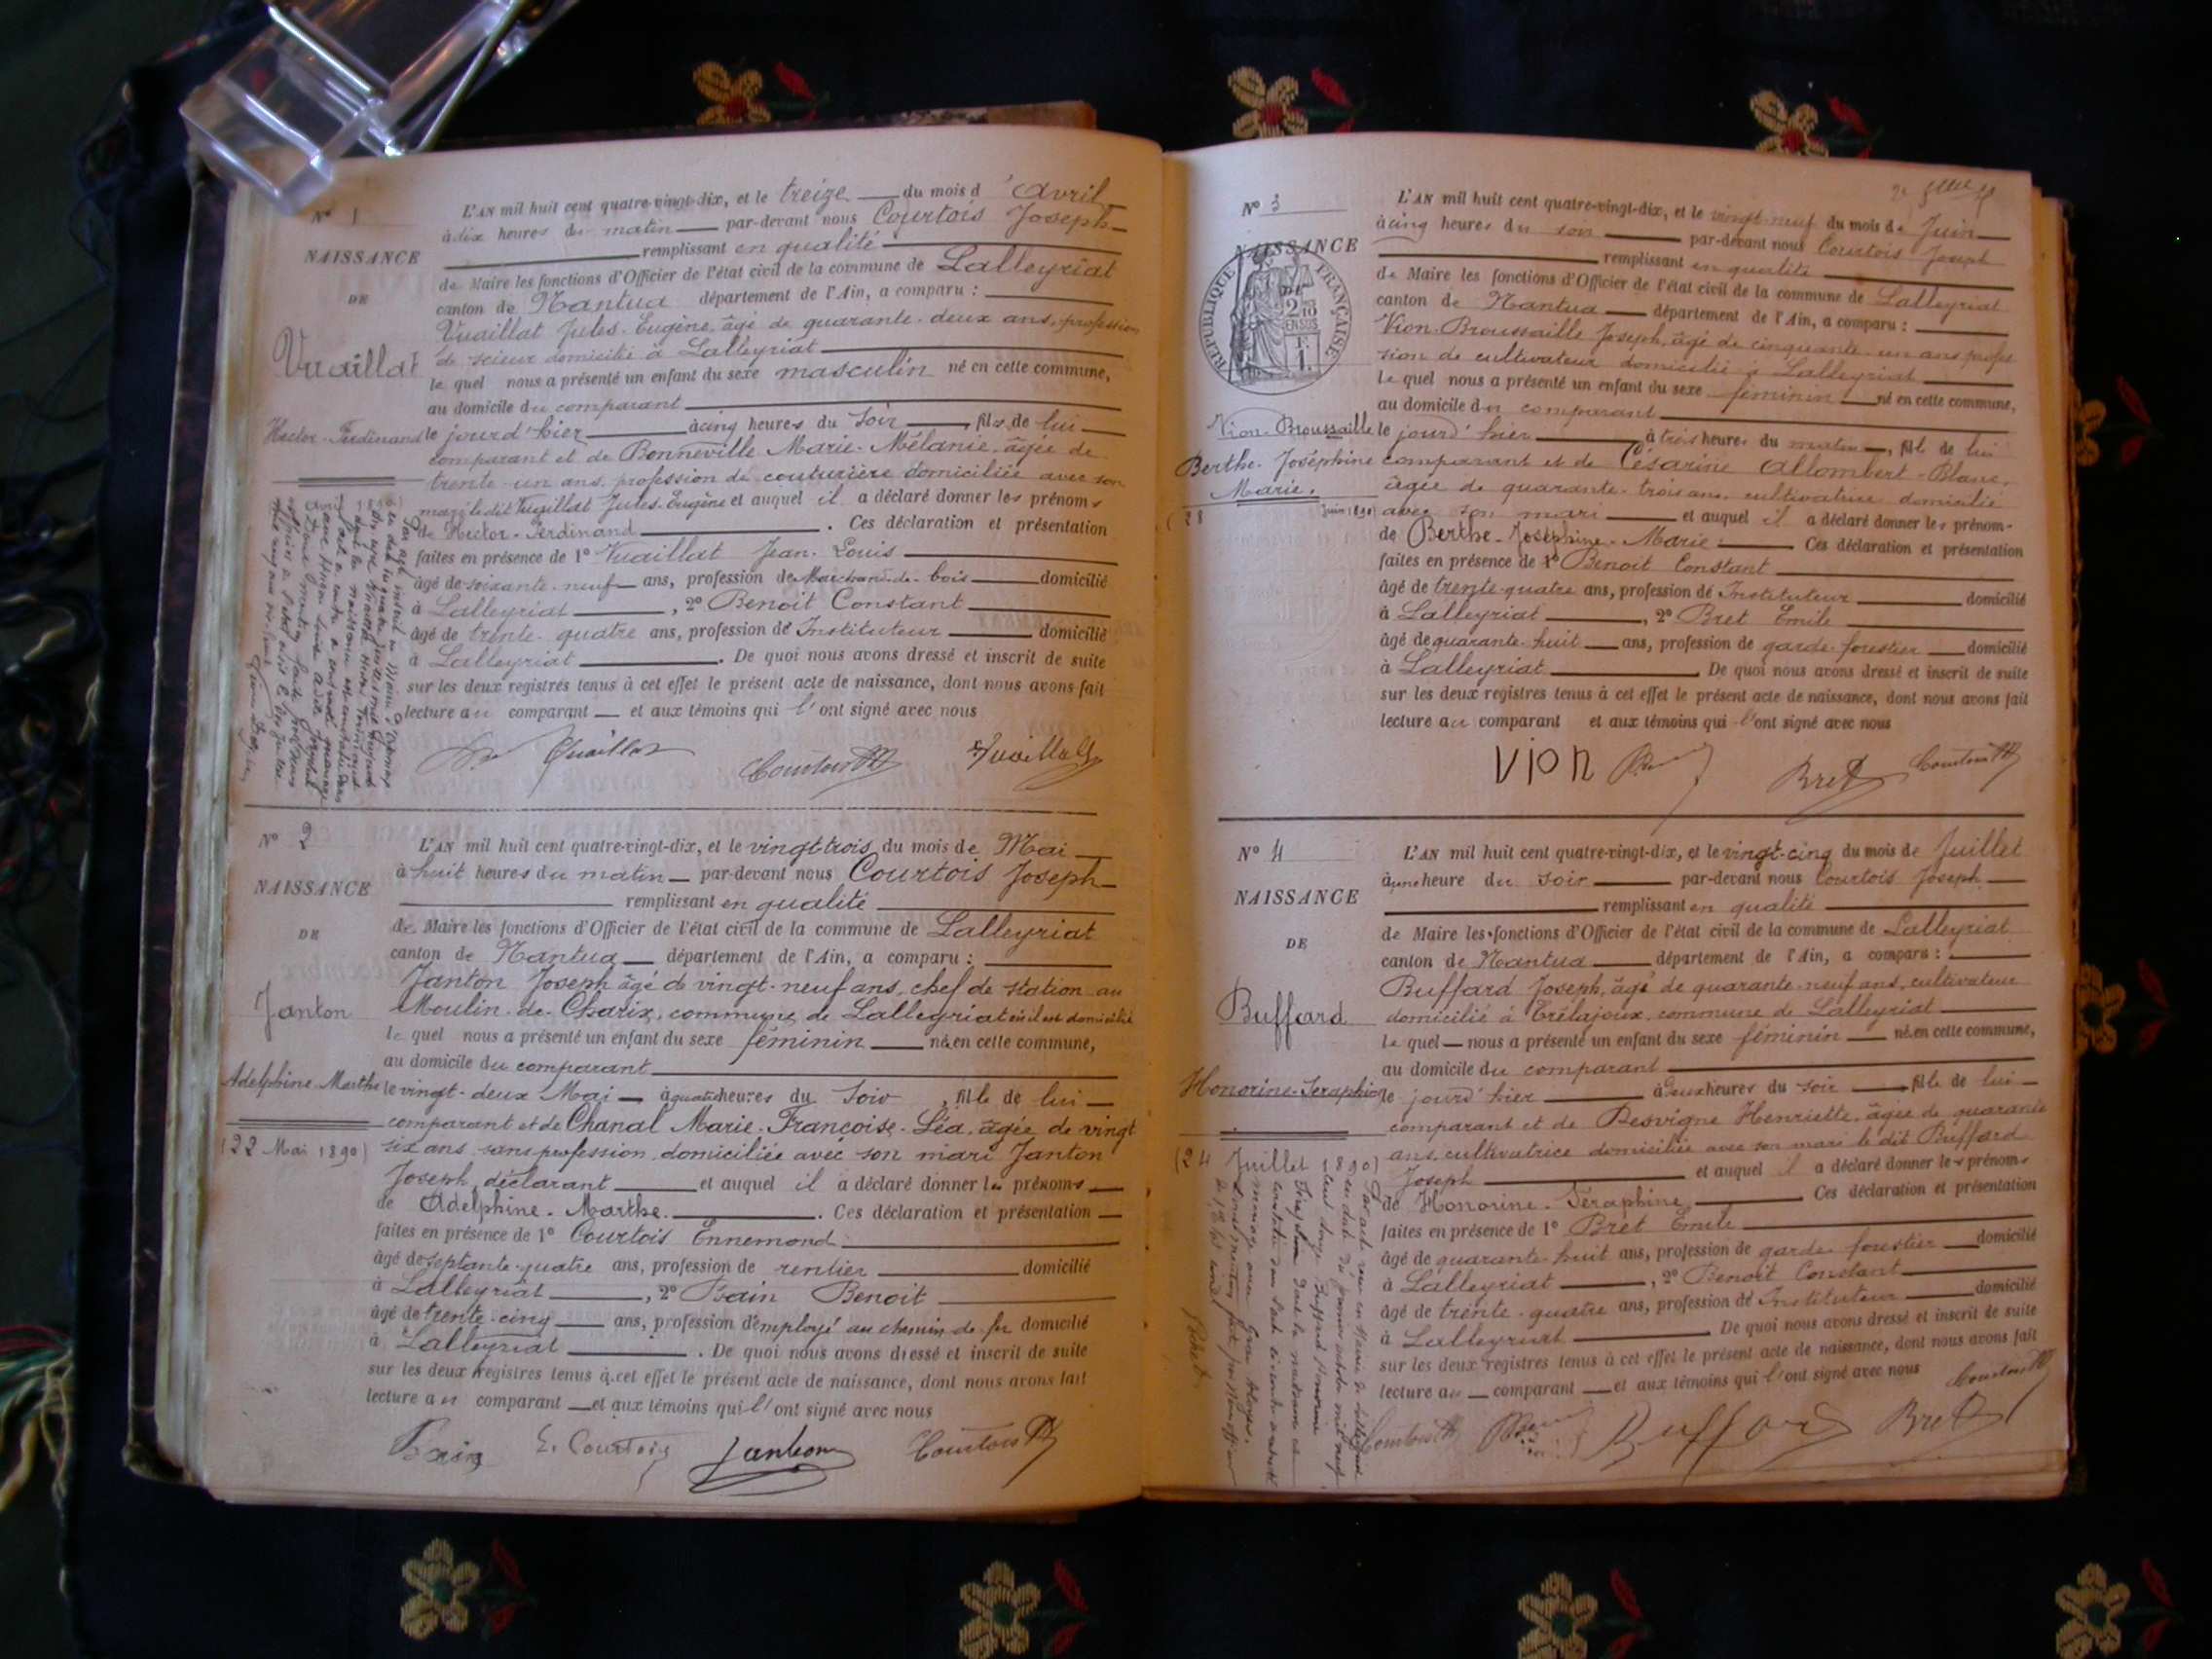 N° 1
NAISSANCE
DE
Vuaillat
Hector-Ferdinand
L'AN mil huit cent quatre-vingt-dix, et le treize du mois d'Avril
à dix heures du matin par-devant nous Courtois Joseph
remplissant en qualité
de Maire les fonctions d'Officier de l'état civil de la commune de Lalleyriat
canton de Nantua département de l'Ain, a comparu :
Vuaillat Jules-Eugène, âgé de quarante-deux ans, profession
de scieur domicilié à Lalleyriat
le quel nous a présenté un enfant du sexe masculin né en cette commune,
au domicile du comparant
le jourd'hier à cinq heures du soir, fils de lui
comparant et de Bonneville Marie-Mélanie, âgée de
trente-un ans, profession de couturière domiciliée avec son
mari le dit Vuaillat Jules-Eugène et auquel il a déclaré donner les prénoms
de Hector-Ferdinand. Ces déclaration et présentation
faites en présence de 1° Vuaillat Jean-Louis
âgé de soixante-neuf ans, profession de Marchand-de-bois domicilié
à Lalleyriat, 2° Benoit Constant
âgé de trente-quatre ans, profession de Instituteur domicilié
à Lalleyriat. De quoi nous avons dressé et inscrit de suite
sur les deux registres tenus à cet effet le présent acte de naissance, dont nous avons fait
lecture au comparant et aux témoins qui l'ont signé avec nous
Vuaillat Courtois Vuaillat
N° 2
NAISSANCE
DE
Janton
Adelphine Marthe
(22 Mai 1890)
L'AN mil huit cent quatre-vingt-dix, et le vingt trois du mois de Mai
à huit heures du matin par-devant nous Courtois Joseph
remplissant en qualité
de Maire les fonctions d'Officier de l'état civil de la commune de Lalleyriat
canton de Nantua département de l'Ain, a comparu :
Janton Joseph âgé de vingt-neuf ans, chef de station au
Moulin-de-Charix, commune de Lalleyriat où il est domicilié
le quel nous a présenté un enfant du sexe féminin née en cette commune,
au domicile du comparant
le vingt-deux Mai à quatre heures du soir, fille de lui
comparant et de Chanal Marie-Françoise-Léa, âgée de vingt
six ans sans profession, domiciliée avec son mari Janton
Joseph, déclarant et auquel il a déclaré donner les prénoms
de Adelphine-Marthe. Ces déclaration et présentation
faites en présence de 1° Courtois Ennemond
âgé de septante-quatre ans, profession de rentier domicilié
à Lalleyriat, 2° Bain Benoit
âgé de trente-cinq ans, profession d'employé au chemin-de-fer domicilié
à Lalleyriat. De quoi nous avons dressé et inscrit de suite
sur les deux registres tenus à cet effet le présent acte de naissance, dont nous avons fait
lecture au comparant et aux témoins qui l'ont signé avec nous
Bain E. Courtois Janton Courtois
N° 3
NAISSANCE
DE
RÉPUBLIQUE FRANÇAISE
2/10
EN SUS
Vion-Broussaille
Berthe-Joséphine
Marie.
(28 Juin 1890)
L'AN mil huit cent quatre-vingt-dix, et le vingt-neuf du mois de Juin
à cinq heures du soir par-devant nous Courtois Joseph
remplissant en qualité
de Maire les fonctions d'Officier de l'état civil de la commune de Lalleyriat
canton de Nantua département de l'Ain, a comparu :
Vion-Broussaille Joseph, âgé de cinquante-un ans profes
sion de cultivateur domicilié à Lalleyriat
le quel nous a présenté un enfant du sexe féminin né en cette commune,
au domicile du comparant
le jourd'hier à trois heures du matin, fille de lui
comparant et de Césarine Allombert-Blanc,
âgée de quarante-trois ans, cultivatrice domiciliée
avec son mari et auquel il a déclaré donner les prénoms
de Berthe-Joséphine-Marie. Ces déclaration et présentation
faites en présence de 1° Benoit Constant
âgé de trente-quatre ans, profession de Instituteur domicilié
à Lalleyriat, 2° Bret Emile
âgé de quarante-huit ans, profession de garde-forestier domicilié
à Lalleyriat. De quoi nous avons dressé et inscrit de suite
sur les deux registres tenus à cet effet le présent acte de naissance, dont nous avons fait
lecture au comparant et aux témoins qui l'ont signé avec nous
VION Bret Courtois
N° 4
NAISSANCE
DE
Buffard
Honorine-Seraphine
(24 Juillet 1890)
L'AN mil huit cent quatre-vingt-dix, et le vingt-cinq du mois de Juillet
à une heure du soir par-devant nous Courtois Joseph
remplissant en qualité
de Maire les fonctions d'Officier de l'état civil de la commune de Lalleyriat
canton de Nantua département de l'Ain, a comparu :
Buffard Joseph, âgé de quarante-neuf ans, cultivateur
domicilié à Trélajoux, commune de Lalleyriat
le quel nous a présenté un enfant du sexe féminin née en cette commune,
au domicile du comparant
le jourd'hier à deux heures du soir, fille de lui
comparant et de Desvigne Henriette, âgée de quarante
ans, cultivatrice domiciliée avec son mari le dit Buffard
Joseph et auquel il a déclaré donner les prénoms
de Honorine-Seraphine. Ces déclaration et présentation
faites en présence de 1° Bret Emile
âgé de quarante-huit ans, profession de garde-forestier domicilié
à Lalleyriat, 2° Benoit Constant
âgé de trente-quatre ans, profession de Instituteur domicilié
à Lalleyriat. De quoi nous avons dressé et inscrit de suite
sur les deux registres tenus à cet effet le présent acte de naissance, dont nous avons fait
lecture au comparant et aux témoins qui l'ont signé avec nous
Courtois Buffard Bret Courtois